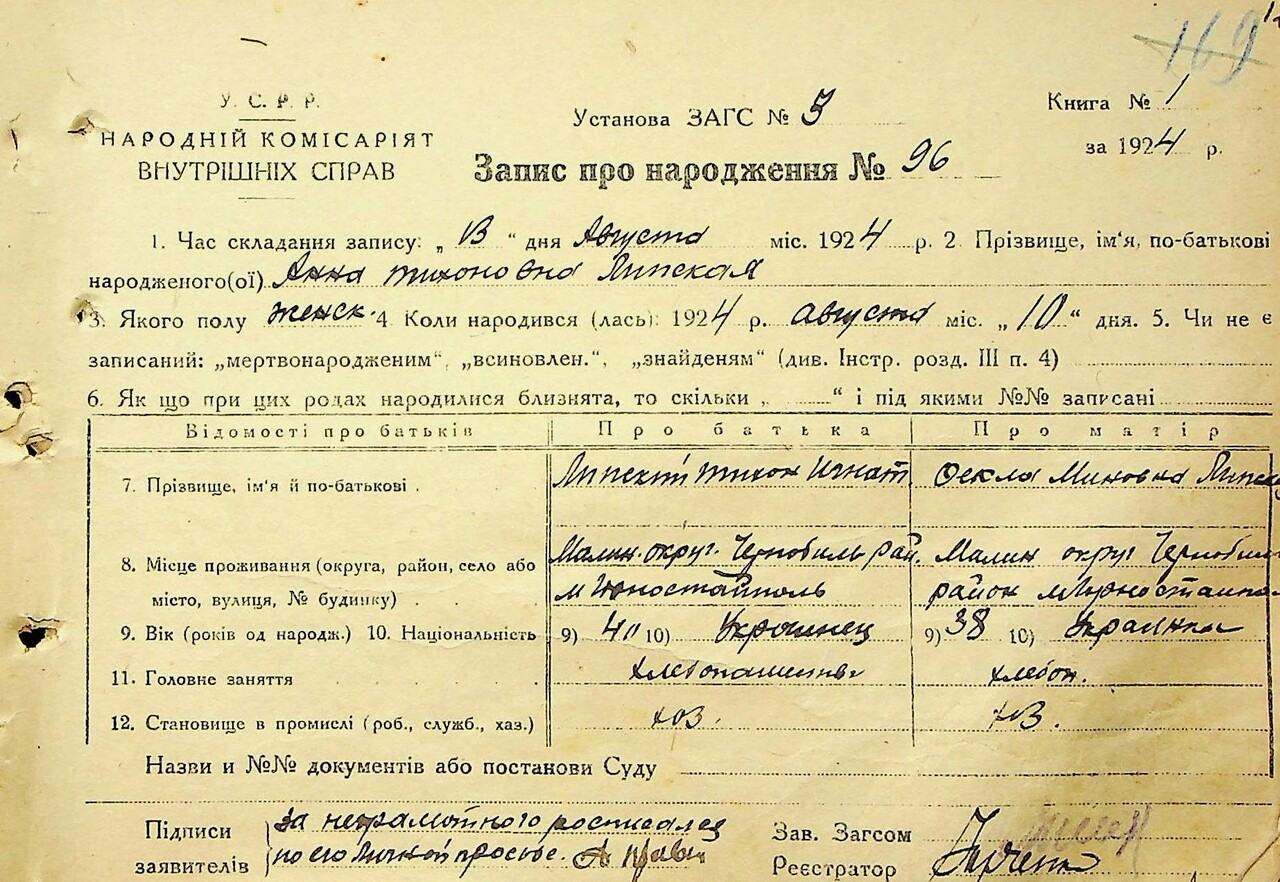 169
У. С. Р. Р.
НАРОДНІЙ КОМІСАРІЯТ
ВНУТРІШНІХ СПРАВ
Установа ЗАГС № 3
Запис про народження № 96
Книга № 1
за 1924 р.
1. Час складання запису: „ 13 “ дня Августа міс. 1924 р. 2. Прізвище, ім'я, по-батькові
народженого(ої) Анна Тихоновна Липская
3. Якого полу женск. 4. Коли народився (лась): 1924 р. августа міс. „10“ дня. 5. Чи не є
записаний: „мертвонародженим“, „всиновлен.“, „знайденям“ (див. Інстр. розд. III п. 4)
6. Як що при цих родах народилися близнята, то скільки „ “ і під якими №№ записані
Відомості про батьків Про батька Про матір
7. Прізвище, ім'я й по-батькові . Липский Тихон Игнат Фекла Миновна Липск
8. Місце проживання (округа, район, село або Малин. округ. Чернобиль рай. Малин округ Чернобил
місто, вулиця, № будинку) район
9. Вік (років од народж.) 10. Національність 9) 40 10) Украинец 9) 38 10) Украинка
11. Головне заняття хлебопашество хлебоп.
12. Становище в промислі (роб., служб., хаз.) хоз. хоз.
Назви и №№ документів або постанови Суду
Підписи за неграмотного росписался
заявителів по его личной просьбе.
Зав. Загсом
Реєстратор